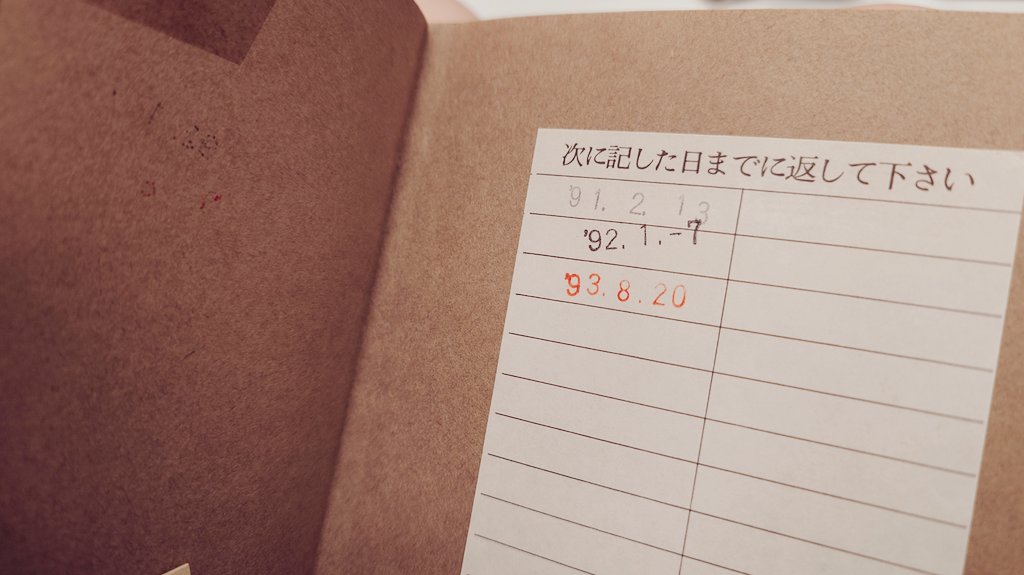 次に記した日までに返して下さい
'91. 2. 13
'92. 1. -7
'93. 8. 20